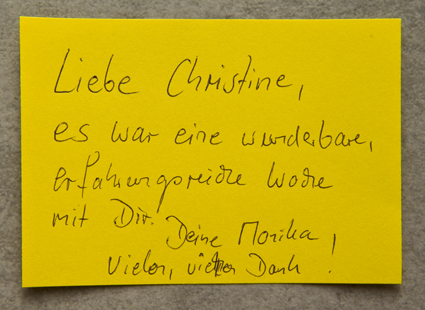 Liebe Christine,
es war eine wunderbare,
erfahrungsreiche Woche
mit Dir.
Deine Monika,
Vielen, vielen Dank!